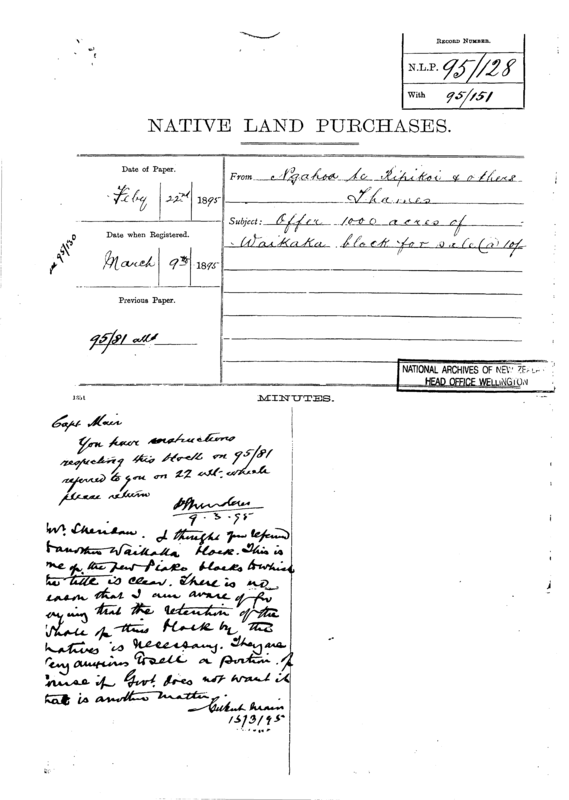 RECORD NUMBER.
N.L.P. 95/128
With 95/151
NATIVE LAND PURCHASES.
Date of Paper.
Feby 22nd 1895
Date when Registered.
March 9th 1895
Previous Paper.
95/81
95/130
From Ngahoa te Kipikoi & others
Thames
Subject: Offer 1000 acres of
Waikaka block for sale @ 10/-
NATIONAL ARCHIVES OF NEW ZEAL
HEAD OFFICE WELLINGTON
MINUTES.
Capt Mair
You have instructions
respecting this block on 95/81
referred to you on 22 ult. which
please return
9.3.95
Mr. Sheridan. I thought you referred
to another Waikaka block. This is
one of the few Piako blocks to which
the title is clear. There is no
reason that I am aware of for
saying that the retention of the
whole of this block by the
natives is necessary. They are
very anxious to sell a portion. Of
course if Govt. does not want it
that is another matter.
Gilbert Mair
15/3/95